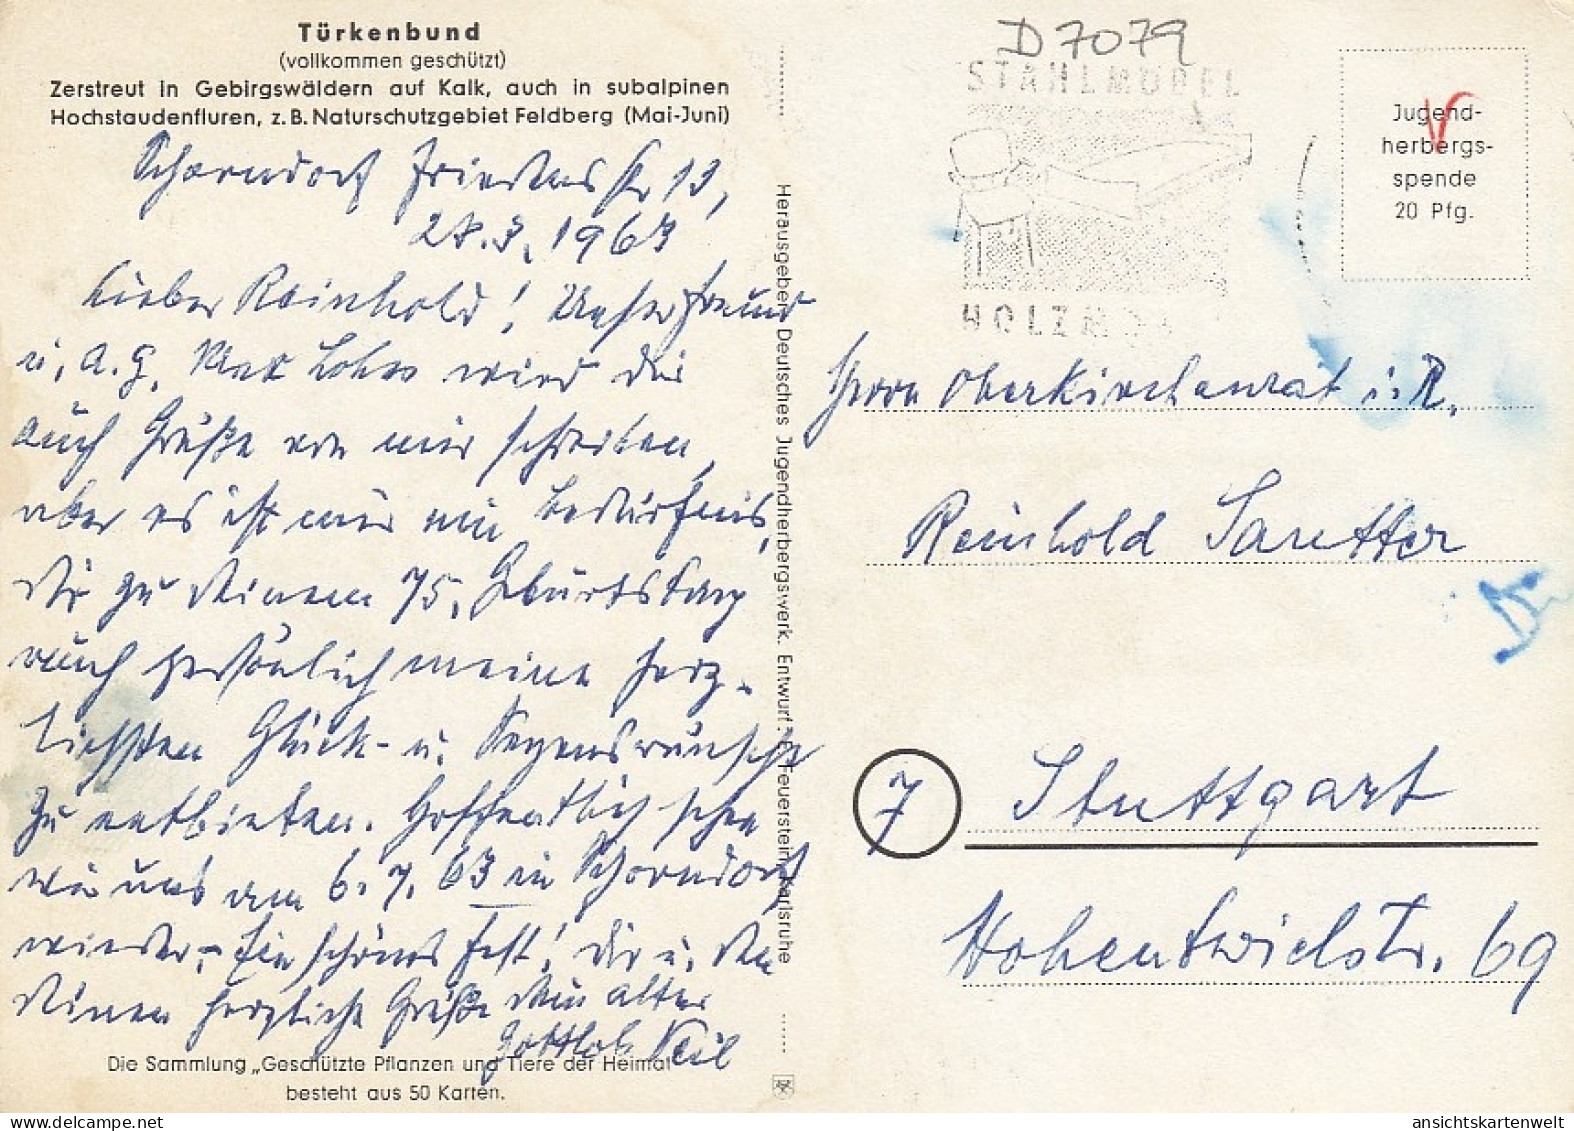 Türkenbund
(vollkommen geschützt)
Zerstreut in Gebirgswäldern auf Kalk, auch in subalpinen
Hochstaudenfluren, z. B. Naturschutzgebiet Feldberg (Mai-Juni)
Schorndorf 13,
27.3.1963
Lieber Reinhold! Unser Freund
u. a. G. Max wird dir
auch Grüße von mir schreiben,
aber es ist mir ein Bedürfnis,
Dir zu Deinem 75. Geburtstag
auch persönlich meine herz-
lichsten Glück- u. Segenswünsche
zu entbieten. Hoffentlich sehen
wir uns am 6.7.63 in Schorndorf
wieder. Ein schönes Fest! Dir u. den
Deinen herzliche Grüße Dein alter
Gottlob Keil
Die Sammlung „Geschützte Pflanzen und Tiere der Heimat
besteht aus 50 Karten.
Herausgeber: Deutsches Jugendherbergswerk. Entwurf: Feuerstein, Karlsruhe
D 7079
STAHLMÖBEL
HOLZMÖ
Jugend-
herbergs-
spende
20 Pfg.
Herrn Oberkirchenrat i. R.
Reinhold Sautter
7 Stuttgart
Hohentwielstr. 69
ansichtskartenwelt